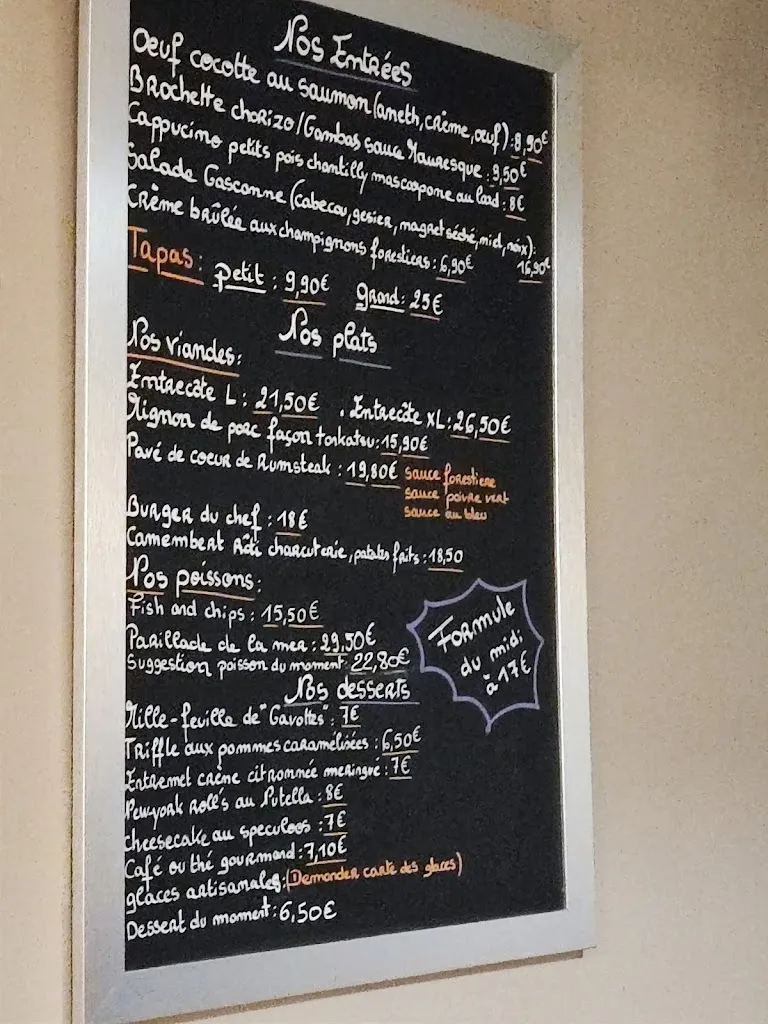 Nos Entrées
Oeuf cocotte au saumon (aneth, crème, oeuf) : 8,90€
Brochette chorizo/Gambas sauce Mauresque : 9,50€
Cappucino petits pois chantilly mascarpone au lard : 8€
Salade Gasconne (cabecou, gesier, magret séché, miel, noix) : 16,90€
Crème brûlée aux champignons forestiers : 6,90€
Tapas : petit : 9,90€ grand : 25€
Nos plats
Nos viandes :
Entrecôte L : 21,50€ . Entrecôte XL : 26,50€
Mignon de porc façon tonkatsu : 15,90€
Pavé de coeur de Rumsteak : 19,80€ sauce forestiere
sauce poivre vert
sauce au bleu
Burger du chef : 18€
Camembert Rôti charcuterie, patates frits : 18,50
Nos poissons :
Fish and chips : 15,50€
Parillade de la mer : 29,50€
Suggestion poisson du moment : 22,80€
Formule
du midi
à 17€
Nos desserts
Mille-feuille de "Gavottes" : 7€
Triffle aux pommes caramélisées : 6,50€
Entremet crème citronnée meringué : 7€
Newyork Roll's au Nutella : 8€
cheesecake au speculoos : 7€
Café ou thé gourmand : 7,10€
glaces artisanales : (Demander carte des glaces)
Dessert du moment : 6,50€